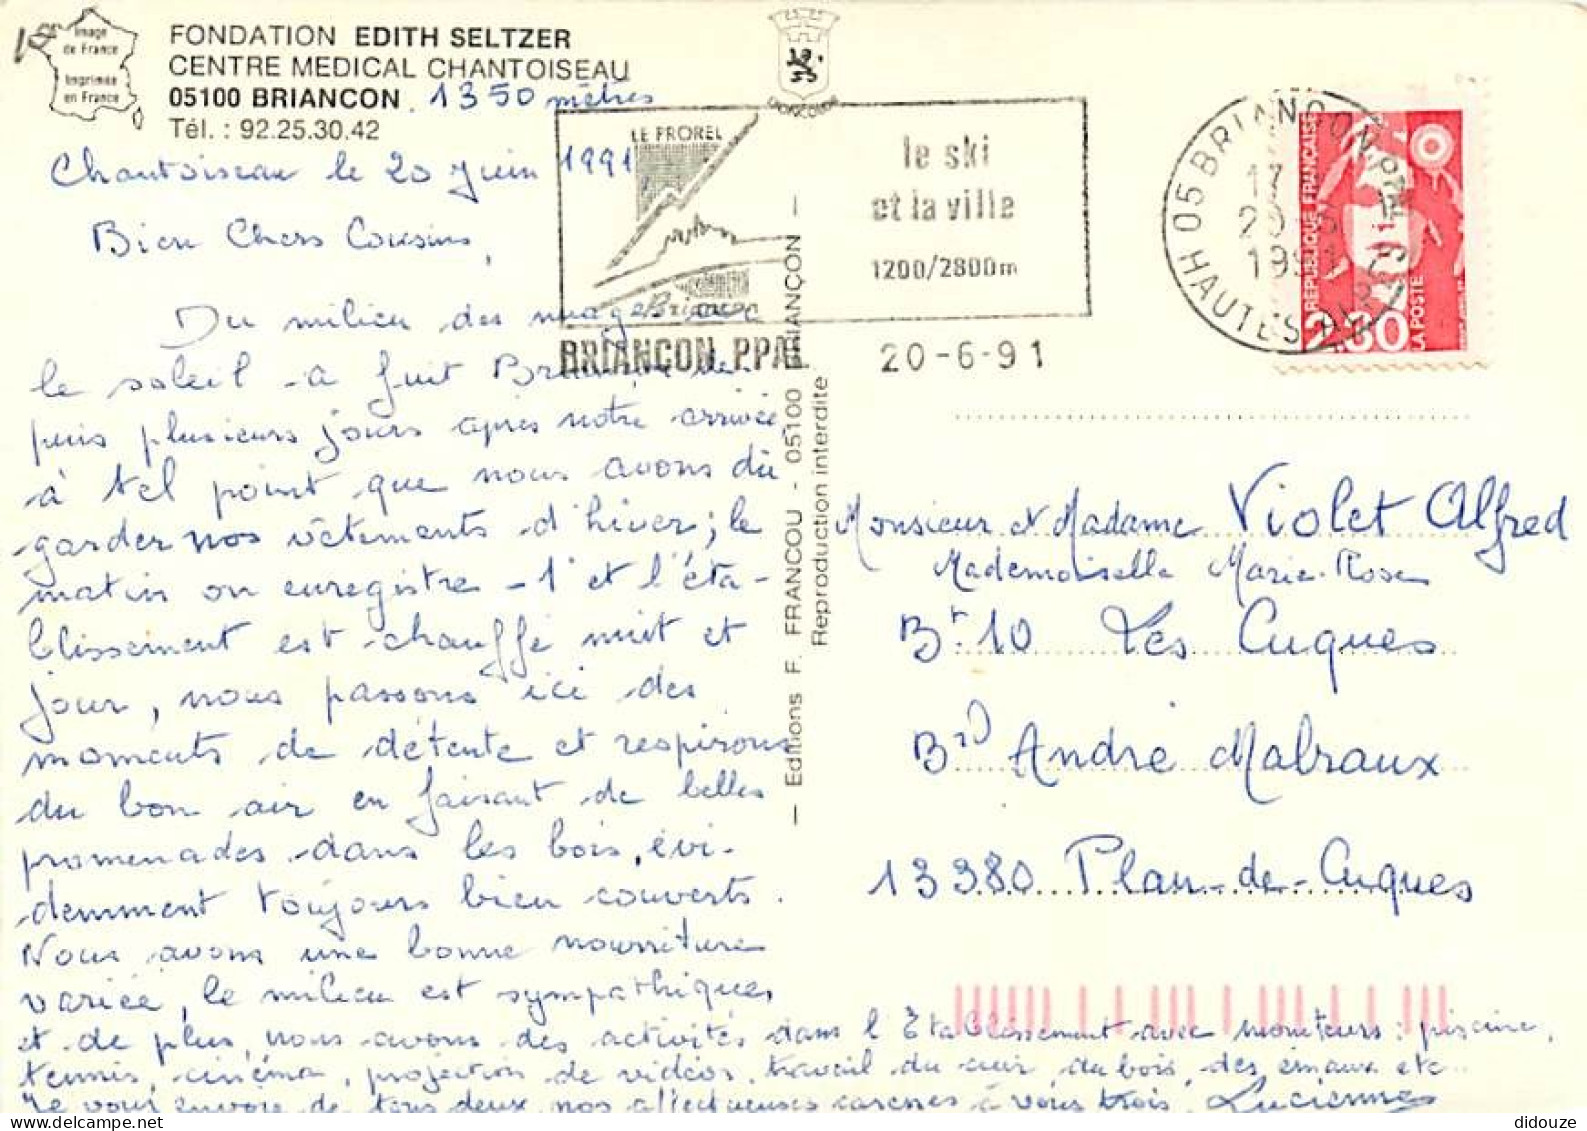 Image
de France
Imprimée
en France
FONDATION EDITH SELTZER
CENTRE MEDICAL CHANTOISEAU
05100 BRIANCON. 1350 mètres
Tél. : 92.25.30.42
Chantoiseau le 20 Juin 1991
Bien Chers Cousins,
Du milieu des nuages car
le soleil a fuit Briançon de-
puis plusieurs jours après notre arrivée,
à tel point que nous avons dû
garder nos vêtements d'hiver; le
matin on enregistre -1° et l'éta-
blissement est chauffé nuit et
jour, nous passons ici des
moments de détente et respirons
du bon air en faisant de belles
promenades dans les bois, évi-
demment toujours bien couverts.
Nous avons une bonne nourriture
variée, le milieu est sympathique,
et de plus, nous avons des activités dans l'Etablissement avec moniteurs: piscine,
tennis, cinéma, projection de vidéos, travail du cuir, du bois, des émaux etc...
Je vous envoie de tous deux nos affectueuses caresses à vous trois. Lucienne
LE PROREL
Briançon
le ski
et la ville
1200/2800m
BRIANCON PPAL
20-6-91
05 BRIANCON PPAL
HAUTES ALPES
17
20-6
1991
RÉPUBLIQUE FRANÇAISE
2.30
LA POSTE
— Editions F. FRANCOU - 05100 BRIANÇON —
Reproduction interdite
Monsieur et Madame Violet Alfred
Mademoiselle Marie-Rose
Bt 10 Les Cuques
Bd André Malraux
13380 Plan-de-Cuques
didouze